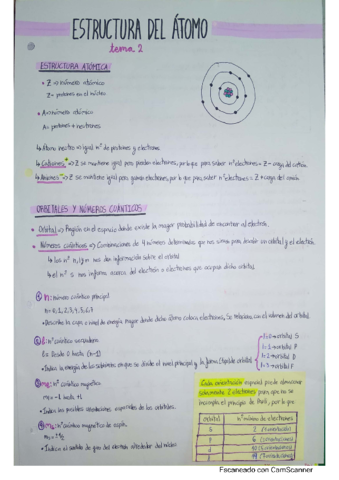 ESTRUCTURA DEL ÁTOMO
tema. 2
ESTRUCTURA ATÓMICA
Z => número atómico
Z = protones en el núcleo
A => número atómico
A = protones + neutrones
↳ Átomo neutro => igual nº de protones y electrones
↳ Cationes + => Z se mantiene igual pero pierden electrones, por lo que para saber nº electrones = Z - carga del catión.
↳ Aniones - => Z se mantiene igual pero ganan electrones, por lo que para saber nº electrones = Z + carga del anión.
ORBITALES Y NÚMEROS CUÁNTICOS
• Orbital => Región en el espacio donde existe la mayor probabilidad de encontrar al electrón.
• Números cuánticos => Combinaciones de 4 números determinados que nos sirven para describir un orbital y el electrón.
↳ los nº n, l y m nos dan información sobre el orbital
↳ el nº s nos informa acerca del electrón o electrones que ocupan dicho orbital.
① n: número cuántico principal
• Describe la capa o nivel de energía
② l: nº cuántico secundario
Es desde 0 hasta (n-1)
l=0 → orbital S
l=1 → orbital P
l=2 → orbital D
l=3 → orbital F
③ ml: nº cuántico magnético
ml = -l hasta +l
• Indica las posibles orientaciones espaciales de los orbitales.
④ ms: nº cuántico magnético de espín.
• Indica el sentido de giro del electrón alrededor del núcleo
Cada orientación espacial puede almacenar
solamente 2 electrones para que no se
incumpla el principio de Pauli, por lo que:
orbital nº máximo de electrones
S 2 (1 orientación)
P 6 (3 orientaciones)
d 10 (5 orientaciones)
f 14 (7 orientaciones)
Escaneado con CamScanner